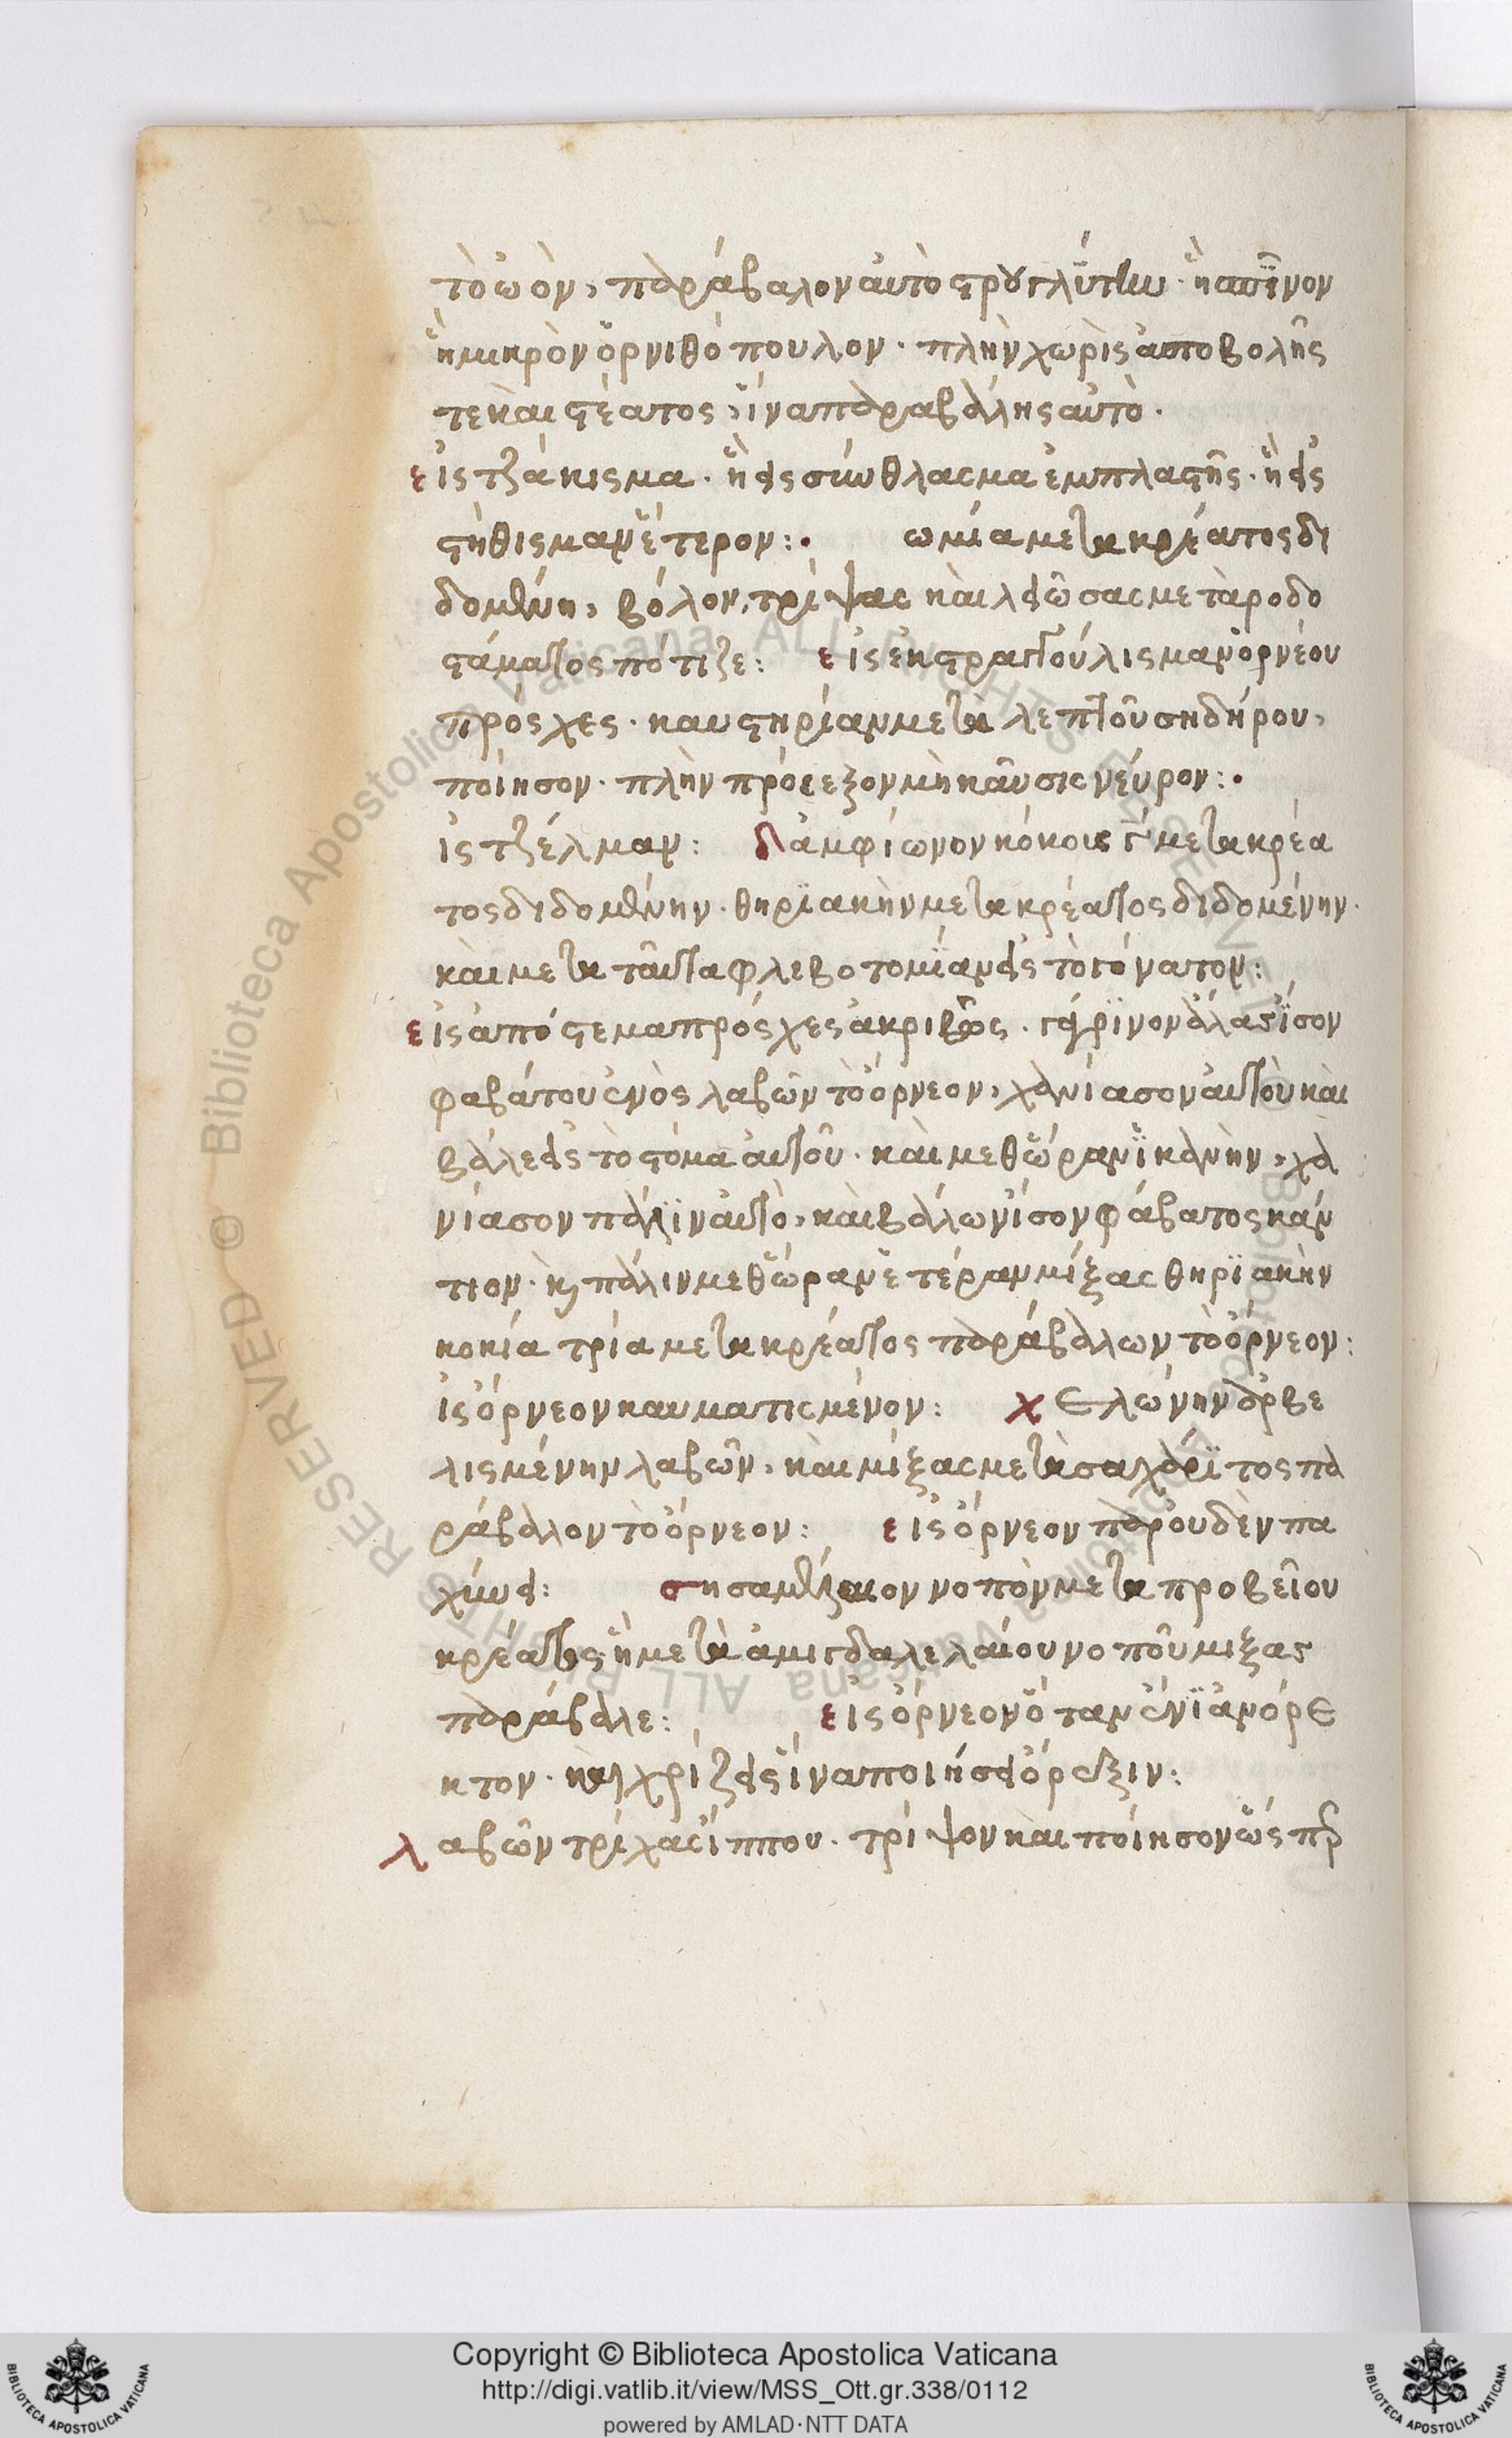 τὸ ὠὸν, παράβαλον αὐτὸ στρουγλΰτην. ἢ ἀπῖνον
ἢ μικρὸν ὀρνιθόπουλον. πλὴν χωρὶς ἀποβολῆς
τε καὶ στέατος, ἵνα παραβάλης αὐτό.
εἰς τζάκισμα. ἢ εἰς σύνθλασμα ἐμπλαστῆς. ἢ εἰς
στήθισμαν ἕτερον:. ωμία μετα κρέατος δι
δομένη, βόλον, τρίψας καὶ λειῶσας μετὰ ροδο
στάματος πότιζε: εἰς ἐκστραγγούλισμαν ὀρνέου
πρόσχες. καυστηρίαν μετὰ λεπτοῦ σηδήρου,
ποίησον. πλὴν πρόσεξον μὴ καῦσις νεύρον:.
ἰς τζέλμαν: Λ ἀμφίωνον κόκοις γ´ μετα κρέα
τος διδομένην. θηρϊακὴν μετα κρέατος διδομένην.
καὶ μετα ταῦτα φλεβοτομΐαν εἰς τὸ γόνατον:
εἰς ἀπόστεμα πρόσχες ἀκριβῶς. γάρϊνον ἅλας ἴσον
φαβάτου ἑνὸς λαβῶν τὸ ὄρνεον, χανίασον αὐτὸν καὶ
βάλε εἰς τὸ στόμα αὐτοῦ. καὶ μεθ ὥραν ἱκανὴν, χα
νίασον πάλϊν αὐτὸ, καὶ βάλων ἴσον φάβατος κάν
τιον. κ πάλιν μεθ ὥραν ἑτέραν μίξας θηρϊακὴν
κοκία τρία μετα κρέατος παράβαλων τὸ ὄρνεον:
ἰς ὄρνεον καυματισμένον: χελώνην ἀρβε
λισμένην λαβῶν, καὶ μίξας μετὰ σαχάρϊτος πα
ράβαλον τὸ ὄρνεον: εἰς ὄρνεον παρουδὲν πα
χύνει: σησαμέλαιον νοπὸν μετα προβεῖου
κρέατος, ἢ μετὰ ἀμιγδαλελαίου νοποῦ μιξας
παράβαλε: εἰς ὄρνεον ὅταν ἐνϊ ἀνόρε
κτον. καὶ χρίζει ἵνα ποιήσει ὄρεξιν:
λαβῶν τρίχας ἵππου. τρίψον καὶ ποίησον ὥσπερ